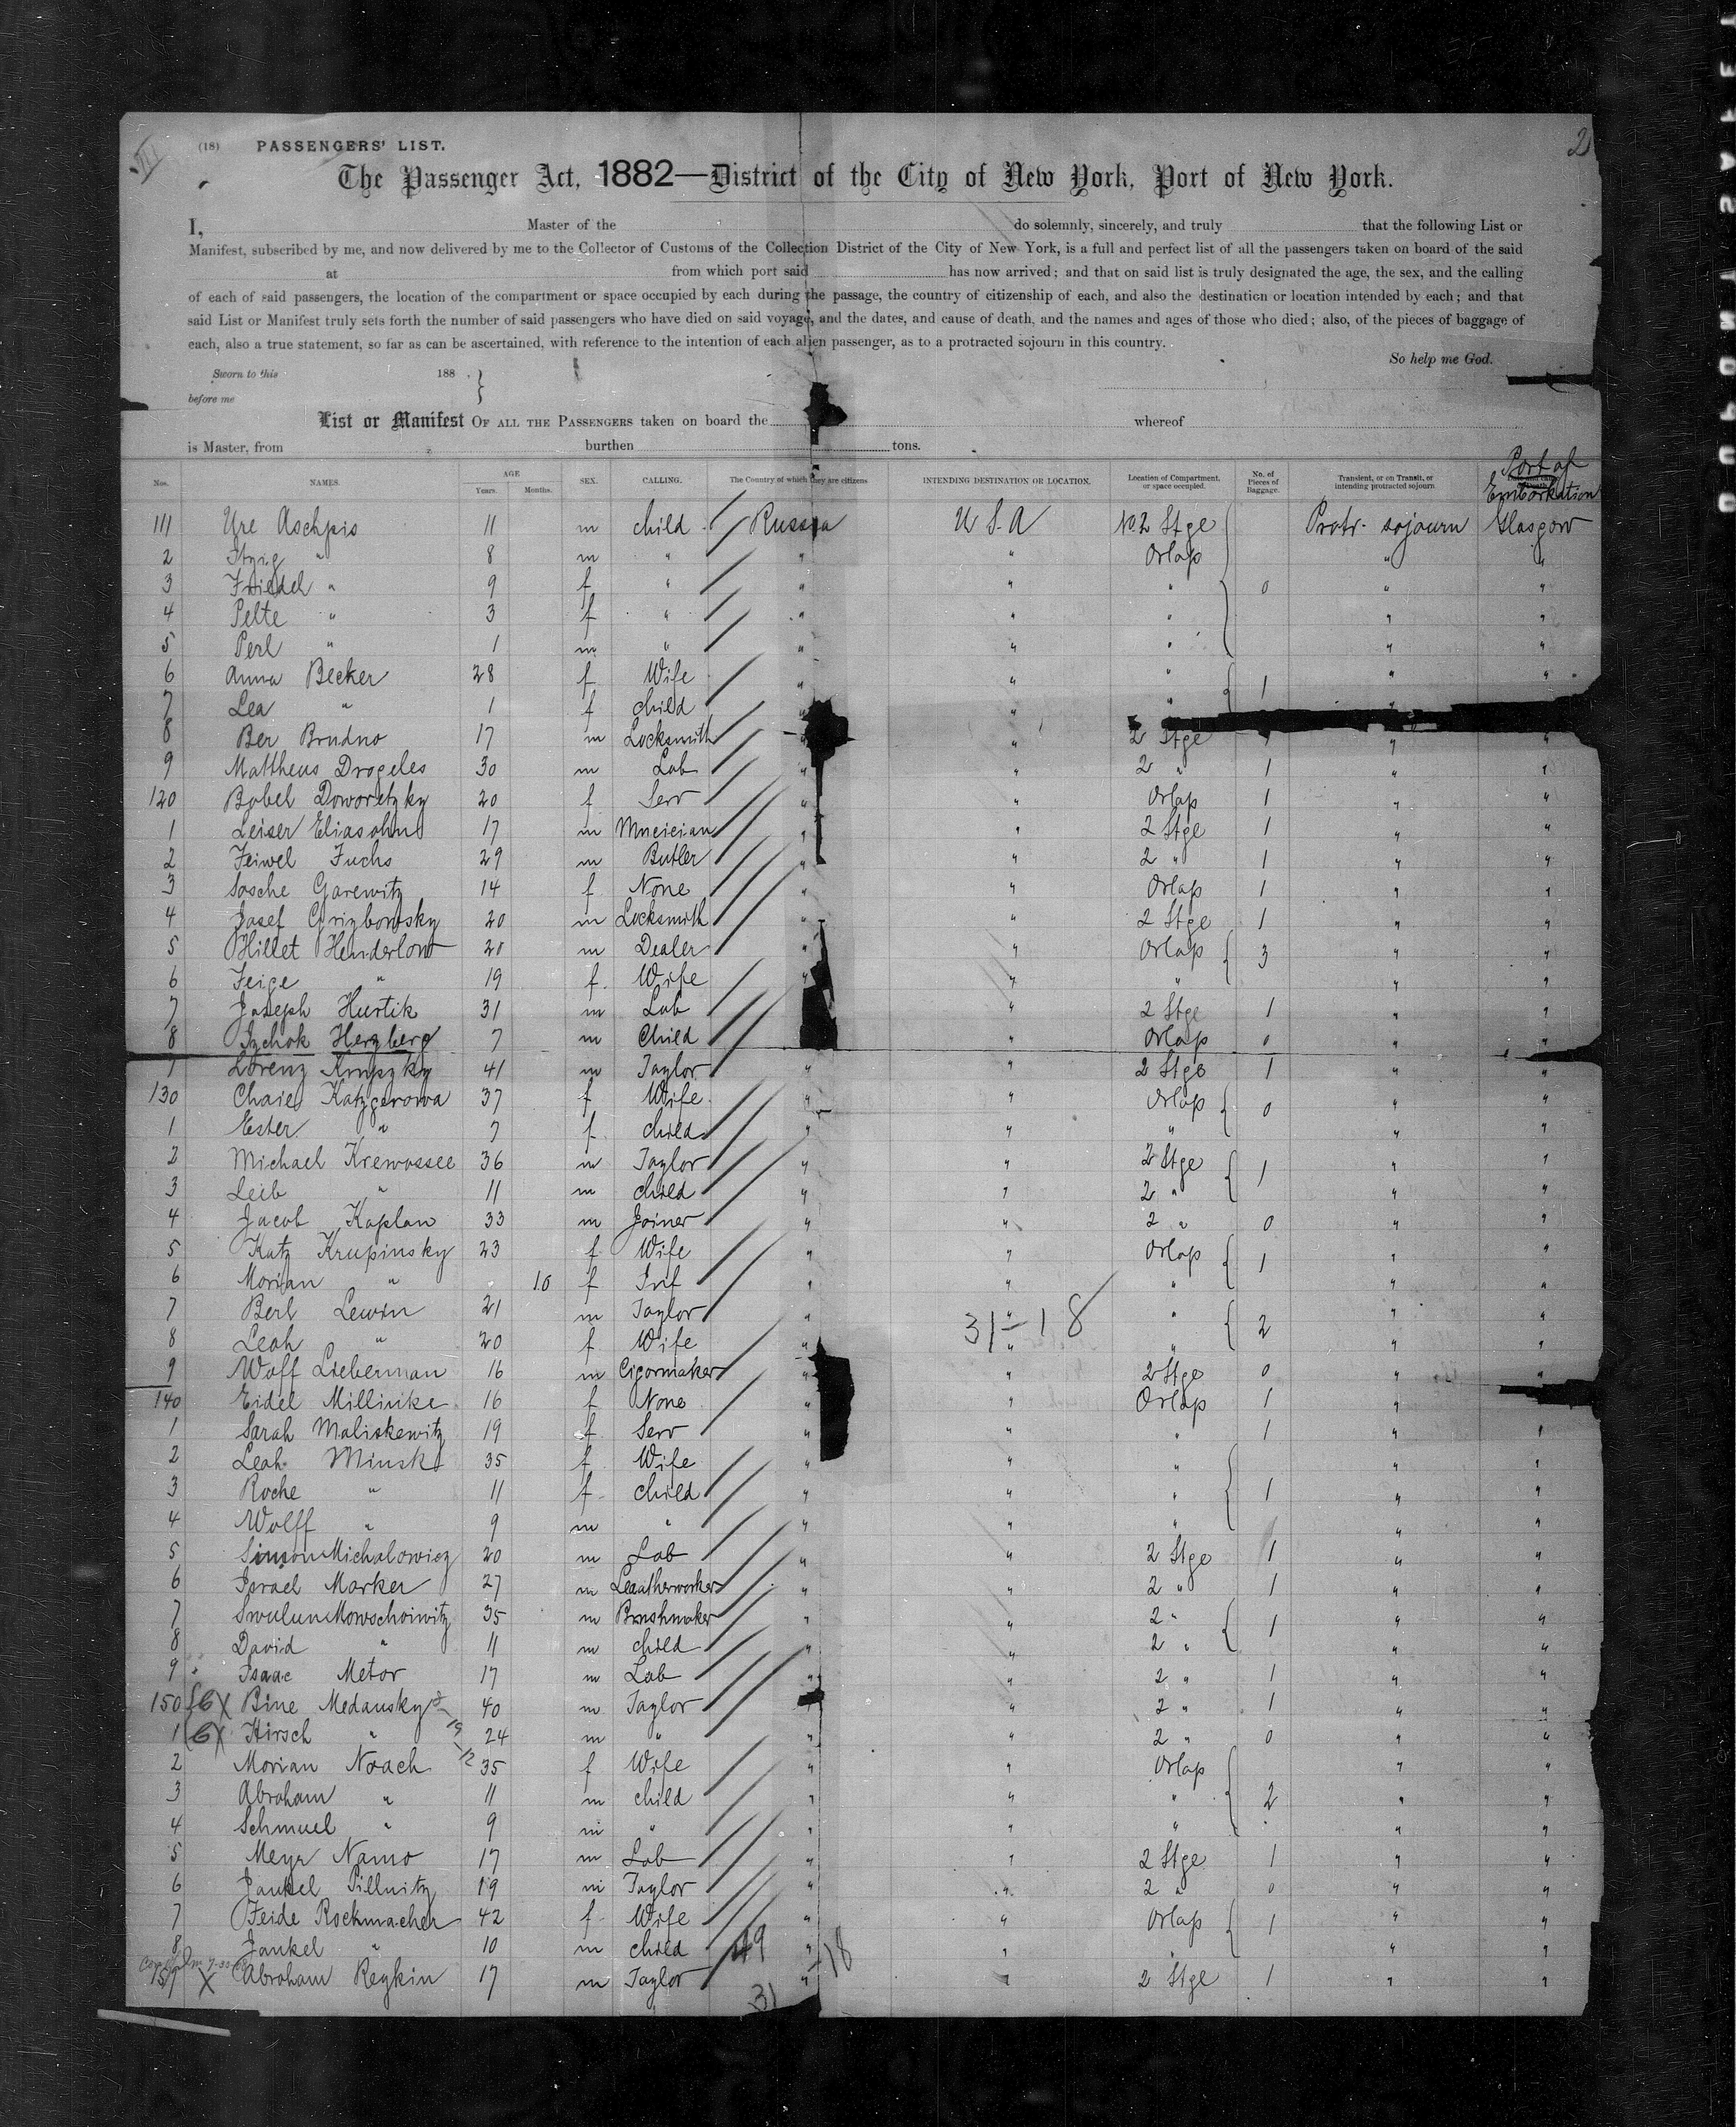 (18) PASSENGERS' LIST. 2
The Passenger Act, 1882—District of the City of New York, Port of New York.
I, Master of the do solemnly, sincerely, and truly that the following List or
Manifest, subscribed by me, and now delivered by me to the Collector of Customs of the Collection District of the City of New York, is a full and perfect list of all the passengers taken on board of the said
at from which port said has now arrived; and that on said list is truly designated the age, the sex, and the calling
of each of said passengers, the location of the compartment or space occupied by each during the passage, the country of citizenship of each, and also the destination or location intended by each; and that
said List or Manifest truly sets forth the number of said passengers who have died on said voyage, and the dates, and cause of death, and the names and ages of those who died; also, of the pieces of baggage of
each, also a true statement, so far as can be ascertained, with reference to the intention of each alien passenger, as to a protracted sojourn in this country.
So help me God.
Sworn to this 188 }
before me
List or Manifest OF ALL THE PASSENGERS taken on board the whereof
is Master, from burthen tons.
Nos. NAMES. AGE Years. Months. SEX. CALLING. The Country of which they are citizens INTENDING DESTINATION OR LOCATION. Location of Compartment, or space occupied. No. of Pieces of Baggage. Transient, or on Transit, or intending protracted sojourn. Port of Embarkation
111 Ure Aschpis 11 m child Russia U S A No 2 Stge Protr. sojourn Glasgow
2 Itzig " 8 m " " " Orlop " "
3 Friedel " 9 f " " " " 0 " "
4 Pelte " 3 f " " " " " "
5 Perl " 1 m " " " " " "
6 Anna Becker 28 f Wife " " " 1 " "
7 Lea " 1 f child " " " "
8 Ber Brudno 17 m Locksmith " " 2 Stge 1 " "
9 Mattheus Drogeles 30 m Lab " " 2 " 1 " "
120 Bobel Doworetzky 20 f Serv " " Orlop 1 " "
1 Leiser Eliasohn 17 m Musician " " 2 Stge 1 " "
2 Feiwel Fuchs 29 m Butler " " 2 " 1 " "
3 Sosche Garewitz 14 f None " " Orlop 1 " "
4 Josef Grizbowsky 20 m Locksmith " " 2 Stge 1 " "
5 Hillet Henderlow 20 m Dealer " " Orlop 3 " "
6 Feige " 19 f Wife " " " " "
7 Joseph Hurtik 31 m Lab " 2 Stge 1 " "
8 Izchok Herzberg 7 m Child " Orlop 0 " "
1 Lorenz Krupzky 41 m Taylor " " 2 Stge 1 " "
130 Chaie Katzgerowa 37 f Wife " " Orlop 0 " "
1 Ester " 7 f child " " " " "
2 Michael Krewossee 36 m Taylor " " 2 Stge 1 " "
3 Leib " 11 m child " " 2 " " "
4 Jacob Kaplan 33 m Joiner " " 2 " 0 " "
5 Katz Krupinsky 23 f Wife " " Orlop 1 " "
6 Morian " 10 f Inf " " " " "
7 Berl Lewin 21 m Taylor " " " 2 " "
31-18
8 Leah " 20 f Wife " " " " "
9 Wolf Lieberman 16 m Cigarmaker " " 2 Stge 0 " "
140 Eidel Millinke 16 f None " " Orlop 1 "
1 Sarah Maliskewitz 19 f Serv " " " 1 " "
2 Leah Minsk 35 f Wife " " " " "
3 Roche " 11 f child " " " 1 " "
4 Wolff " 9 m " " " " " "
5 Simon Michalowicz 20 m Lab " " 2 Stge 1 " "
6 Israel Marker 27 m Leaatherworker " " 2 " 1 " "
7 Swulun Mowschowitz 35 m Brushmaker " " 2 " 1 " "
8 David " 11 m child " " 2 " " "
9 Isaac Metor 17 m Lab " " 2 " 1 " "
150 X Bine Medansky 40 m Taylor " 2 " 1 " "
1 X Hirsch " 24 m " " " 2 " 0 " "
2 Morian Noach 35 f Wife " " Orlop " "
3 Abraham " 11 m child " " " 2 " "
4 Schmuel " 9 m " " " " " "
5 Meyr Namo 17 m Lab " " 2 Stge 1 " "
6 Jankel Pillnitz 19 m Taylor " " 2 " 0 " "
7 Feide Rockmacher 42 f Wife " " Orlop 1 " "
8 Jankel " 10 m child " " " " "
49 -18
159 X Abraham Reykin 17 m Taylor " " 2 Stge 1 " "
31